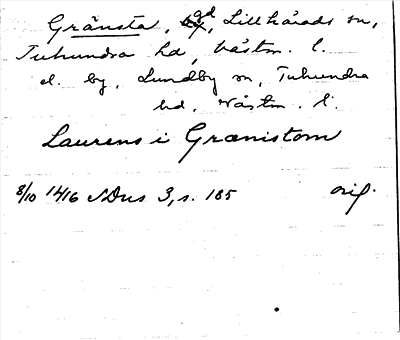 Gränsta, gd, Lillhärads sn,
Tuhundra hd, Västm. l.
el. by, Lundby sn, Tuhundra
hd, Västm. l.
Laurens i Grænistom
8/10 1416 SDns 3, s. 185 orig.